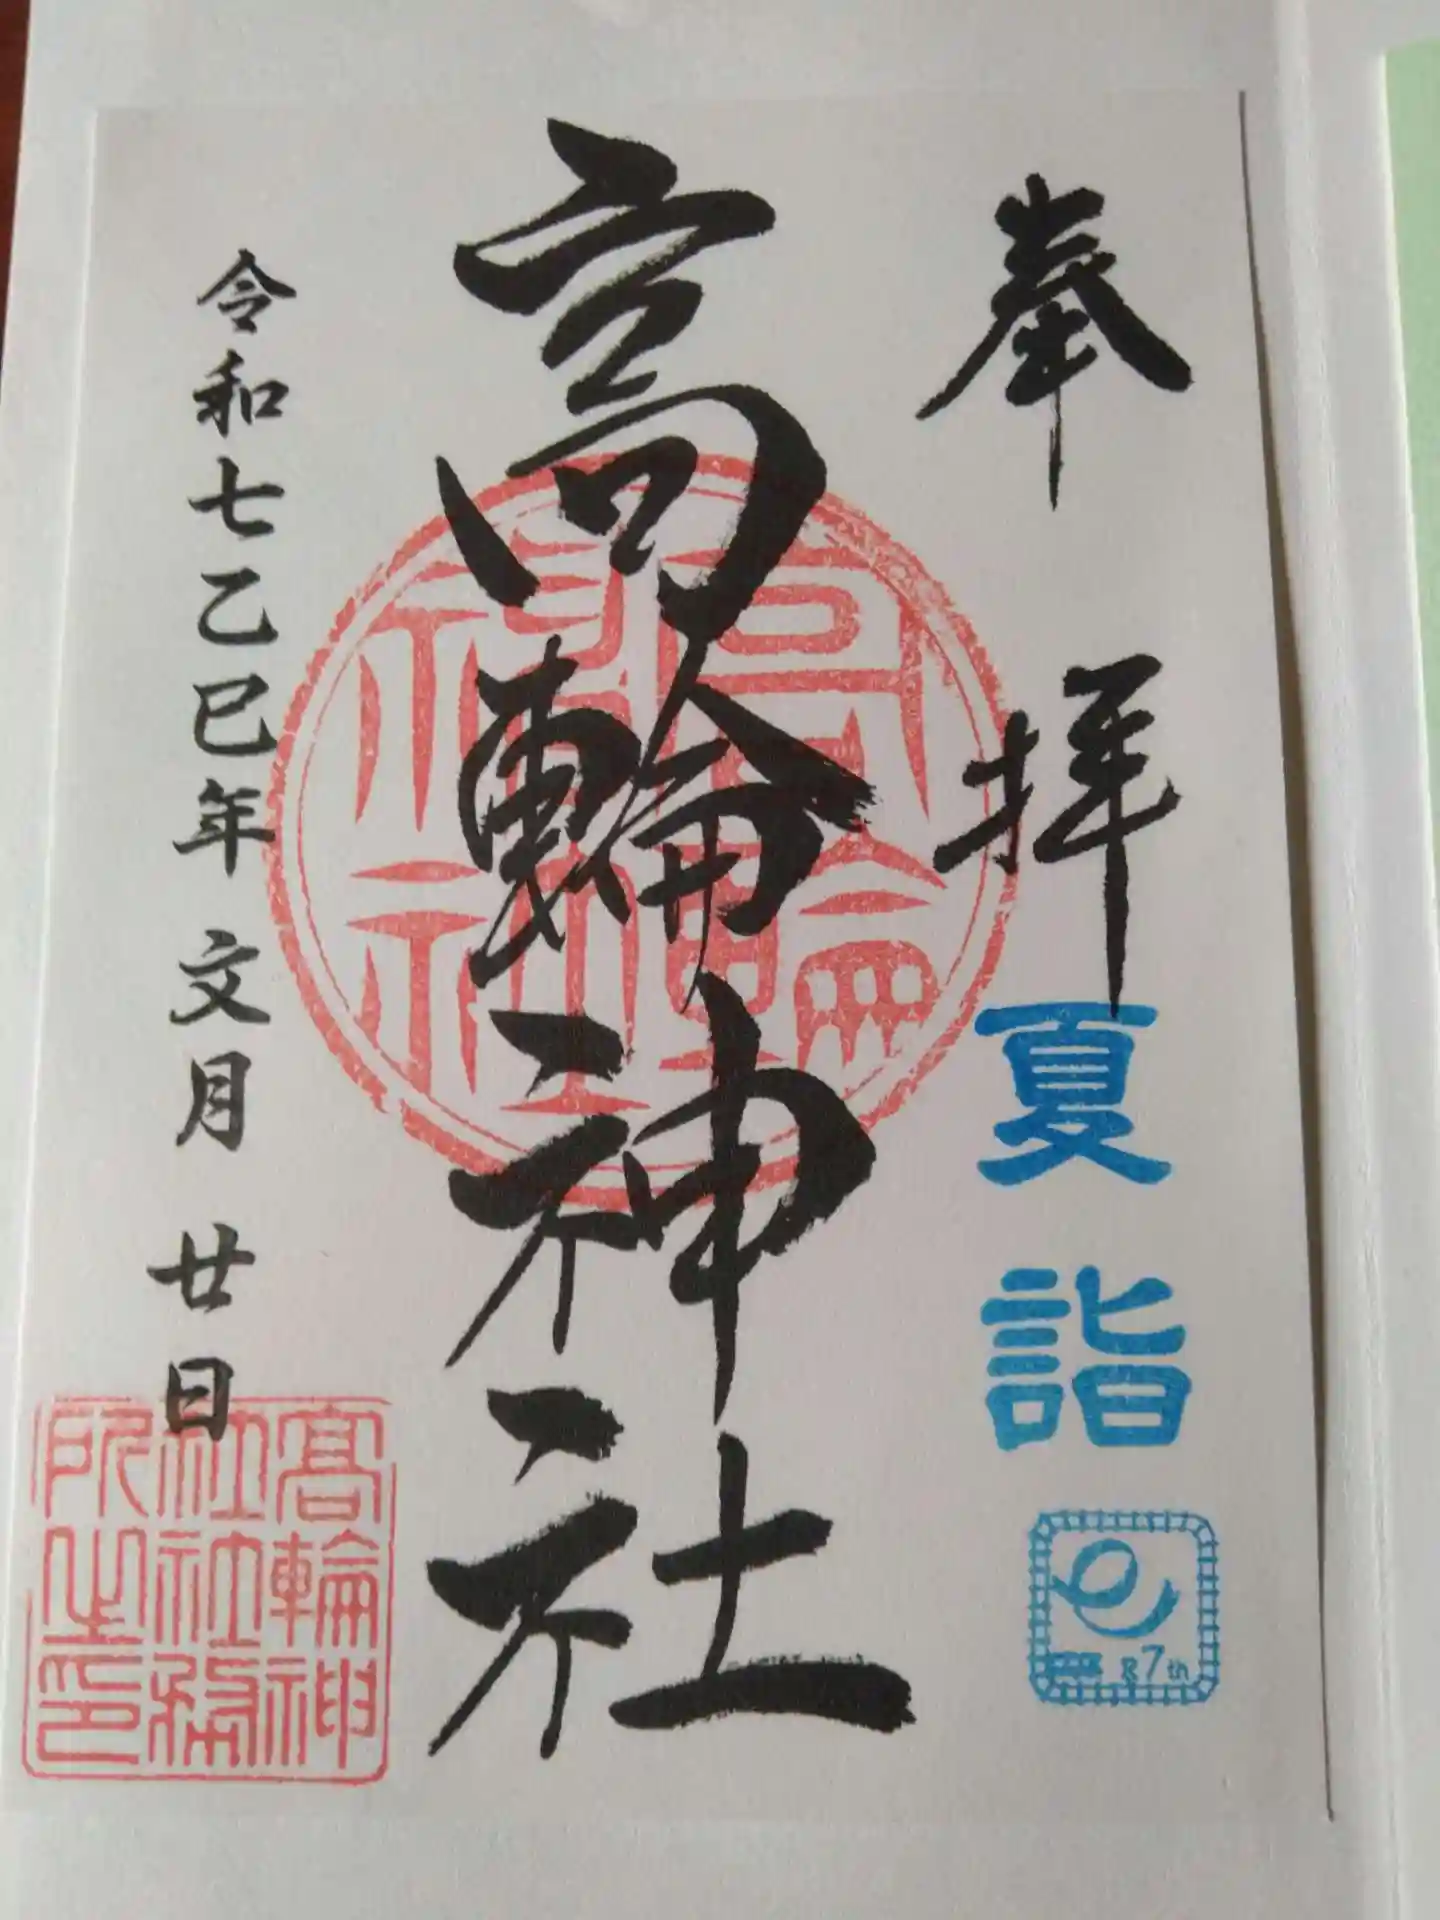 奉拝
夏詣
7th
高輪神社
高輪神社
令和七乙巳年 文月 廿日
高輪神
社社務
所之印